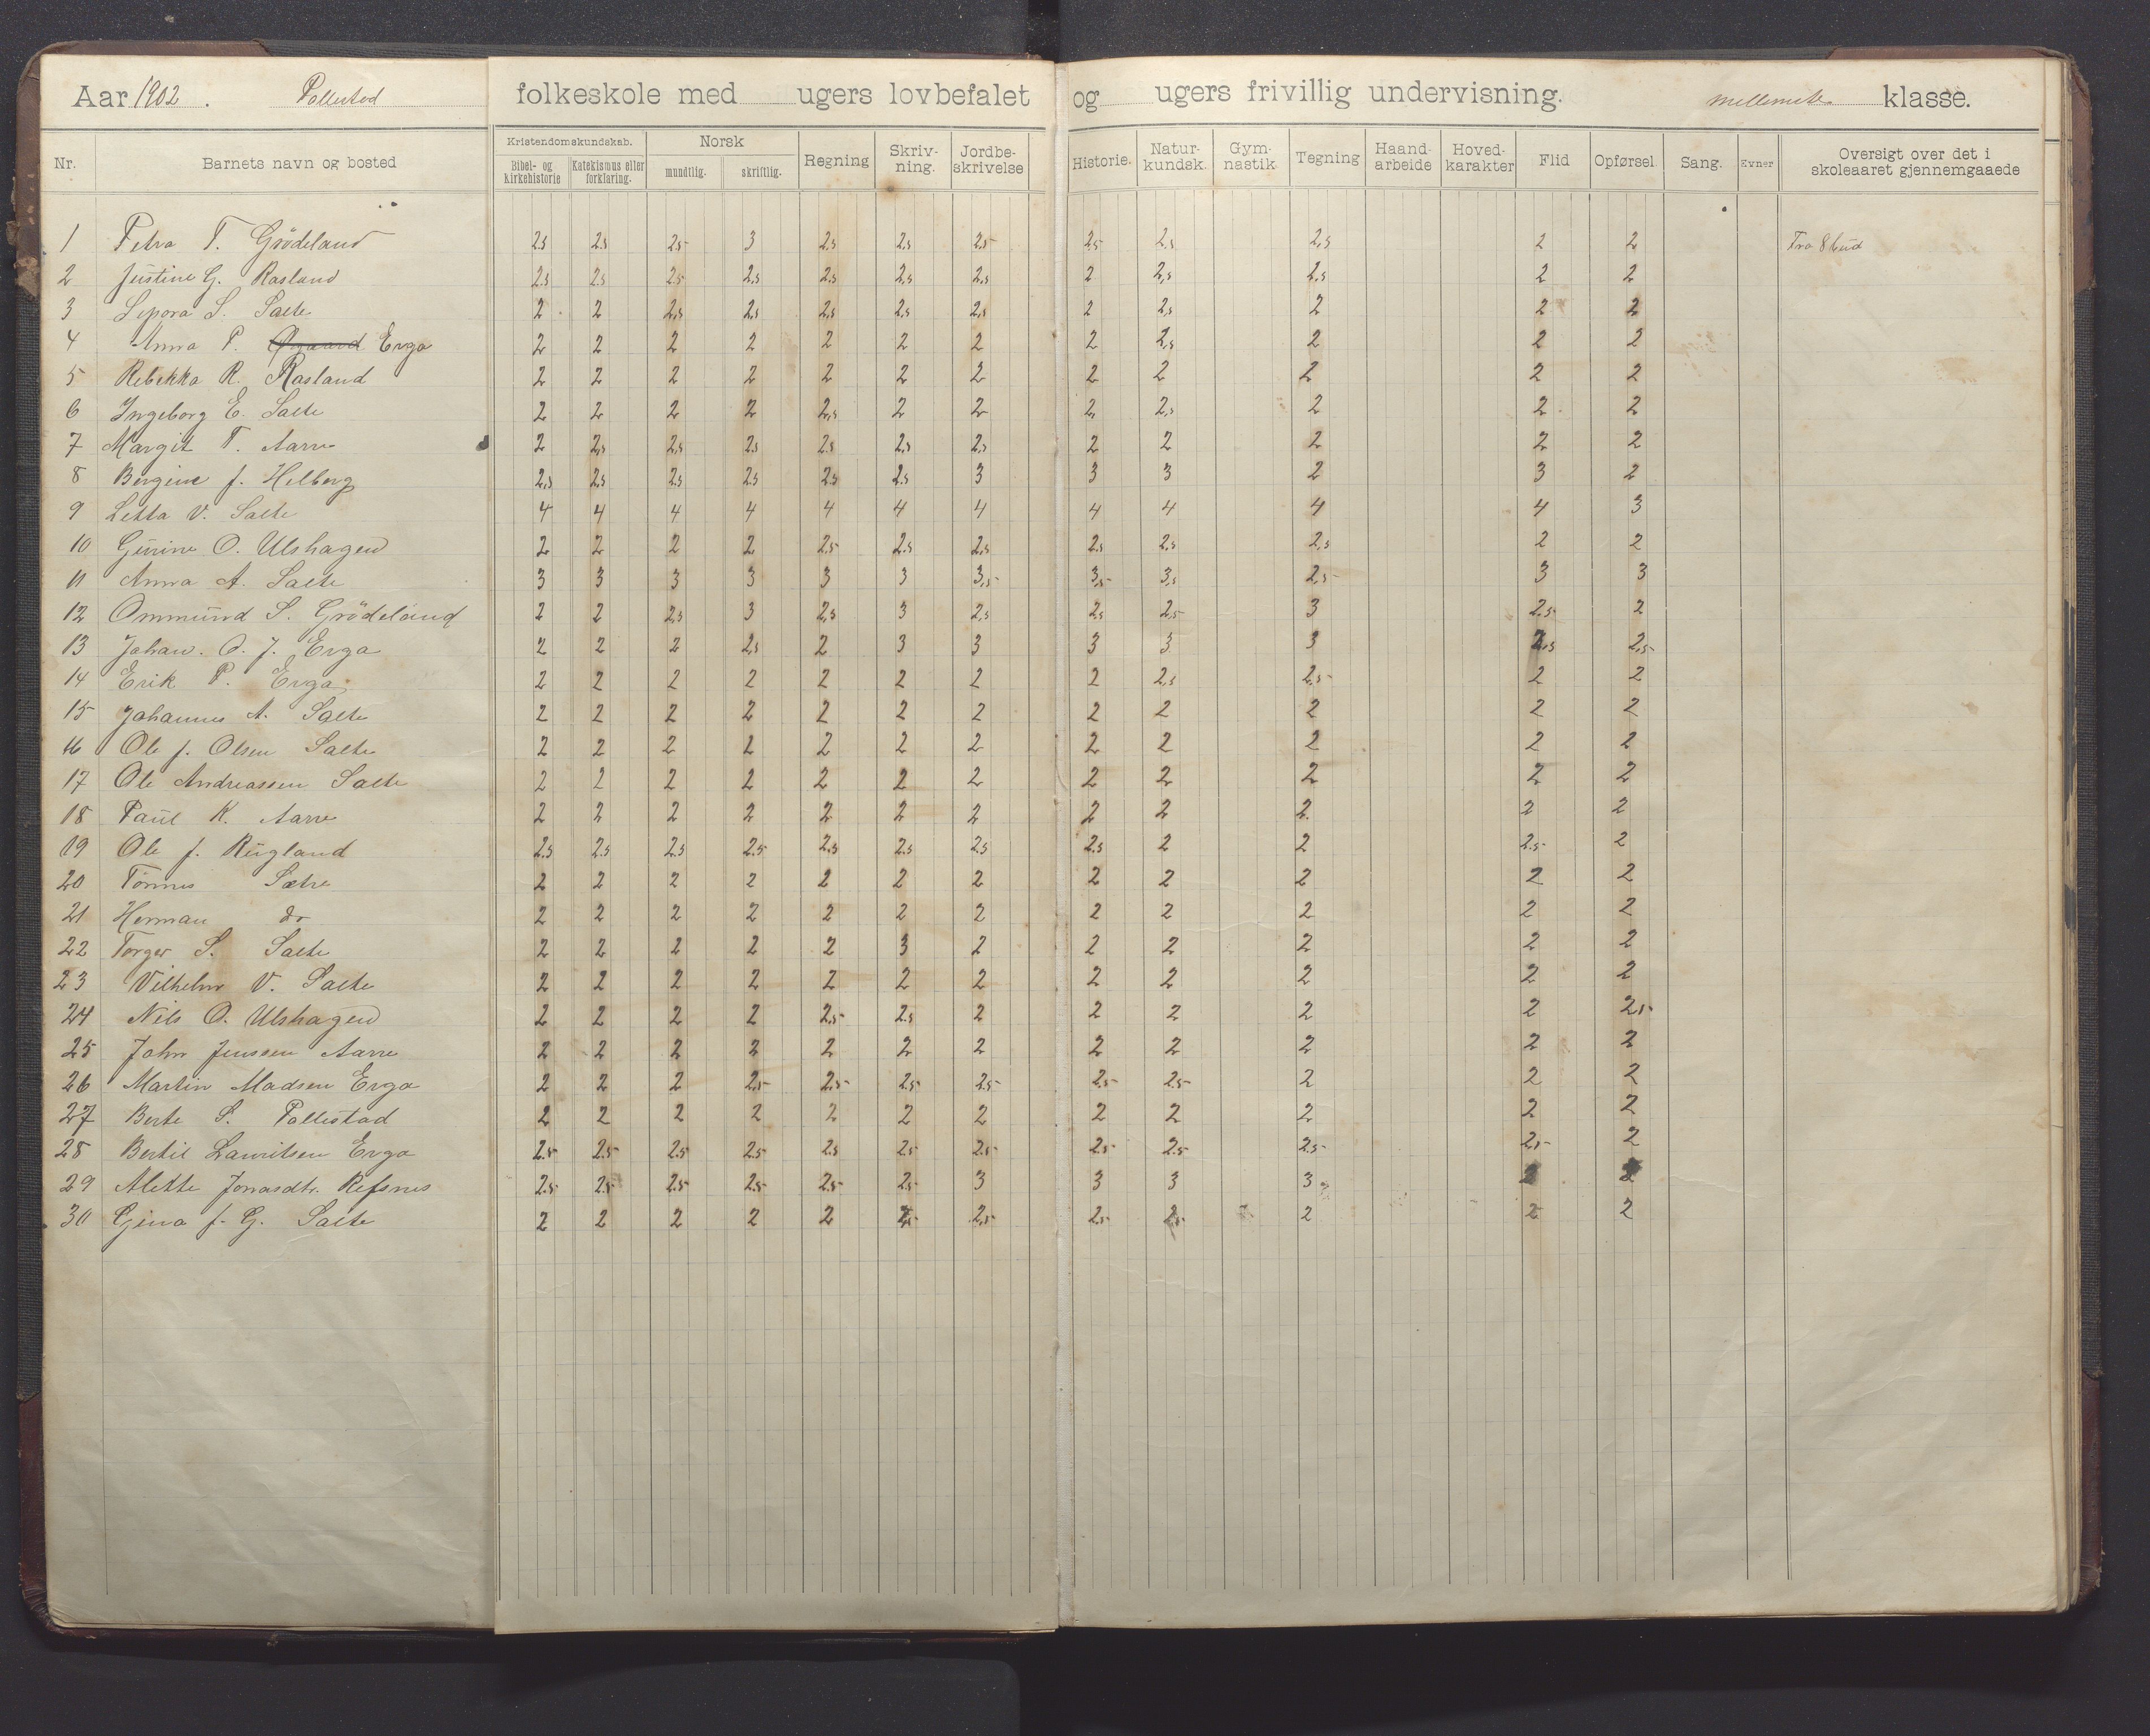 Aar 1902. Pollestad folkeskole med ugers lovbefalet og ugers frivillig undervisning. mellemste klasse.
Nr. Barnets navn og bosted Kristendomskundskab. Bibel- og kirkehistorie Katekismus eller forklaring. Norsk mundtlig. skriftlig. Regning Skriv-ning. Jordbe-skrivelse Historie. Natur-kundsk. Gym-nastik Tegning Haand-arbeide Hoved-karakter Flid Opførsel Sang. Evner Oversigt over det i skoleaaret gjennemgaaede
1 Petra T. Grödeland 2.5 2.5 2.5 3 2.5 2.5 2.5 2.5 2.5 2.5 2 2 Fra 8 bud
2 Justine G. Rasland 2.5 2.5 2.5 2.5 2.5 2.5 2.5 2 2.5 2.5 2 2
3 Sepora S. Salte 2 2 2.5 2.5 2.5 2.5 2.5 2 2.5 2 2 2
4 Anna P. Erga 2 2 2 2 2 2 2 2 2.5 2 2 2
5 Rebekka R. Rasland 2 2 2 2 2 2 2 2 2 2 2 2
6 Ingeborg E. Salte 2 2 2 2 2.5 2 2 2 2.5 2 2 2
7 Margit T. Aarre 2 2.5 2.5 2.5 2.5 2.5 2.5 2 2 2 2 2
8 Bergine J. Helberg 2.5 2.5 2.5 2.5 2.5 2.5 3 3 3 2 3 2
9 Letta V. Salte 4 4 4 4 4 4 4 4 4 4 4 3
10 Gurine O. Ulshagen 2 2 2 2 2.5 2.5 2.5 2.5 2.5 2.5 2 2
11 Anna A. Salte 3 3 3 3 3 3 3.5 3.5 3.5 2.5 3 3
12 Ommund S. Grödeland 2 2 2.5 3 2.5 3 2.5 2.5 2.5 3 2.5 2
13 Johan. O. J. Erga 2 2 2 2.5 2 3 3 3 3 3 2.5 2.5
14 Erik P. Erga 2 2 2 2 2 2 2 2 2.5 2.5 2 2
15 Johannes A. Salte 2 2 2 2 2 2 2 2 2 2 2 2
16 Ole J. Olsen Salte 2 2 2 2 2 2 2 2 2 2 2 2
17 Ole Andreassen Salte 2 2 2 2 2 2 2 2 2 2 2 2
18 Paul K. Aarre 2 2 2 2 2 2 2 2 2 2 2 2
19 Ole J. Rugland 2.5 2.5 2.5 2.5 2.5 2.5 2.5 2.5 2 2 2.5 2
20 Tönnes Sætre 2 2 2 2 2 2 2 2 2 2 2 2
21 Herman do 2 2 2 2 2 2 2 2 2 2 2 2
22 Torger S. Salte 2 2 2 2 2 3 2 2 2 2 2 2
23 Vilhelm V. Salte 2 2 2 2 2 2 2 2 2 2 2 2
24 Nils O. Ulshagen 2 2 2 2 2.5 2.5 2 2 2 2 2 2.5
25 John Jenssen Aarre 2 2 2 2 2 2 2 2 2 2 2 2
26 Martin Madsen Erga 2 2 2 2.5 2.5 2.5 2.5 2.5 2.5 2 2 2
27 Berte S. Pollestad 2 2 2 2 2 2 2 2 2 2 2 2
28 Bertil Lauritsen Erga 2.5 2.5 2.5 2.5 2.5 2.5 2.5 2.5 2.5 2.5 2.5 2
29 Alette Jonasdtr. Refsnes 2.5 2.5 2.5 2.5 2.5 2.5 3 3 3 3 2 2
30 Gina J. G. Salte 2 2 2 2 2 2.5 2.5 2.5 2.5 2 2 2